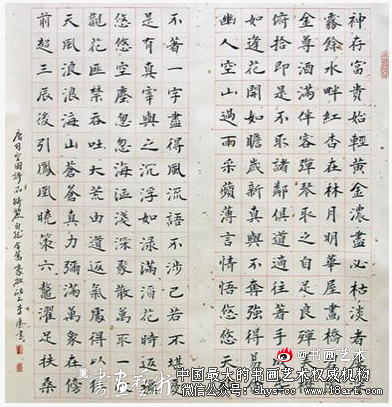 神存富貴始輕黃金濃盡必枯淡者
霧餘水畔紅杏在林月明華屋畫橋
金尊酒滿伴客彈琴取之自足良殫
俯拾即是不取諸鄰俱道適往著手成
如逢花開如瞻歲新真與不奪強得易
幽人空山過雨采蘋薄言情悟悠悠天
不著一字盡得風流語不涉己若不堪
是有真宰與之沉浮如淥滿酒花時返
悠悠空塵忽忽海漚淺深聚散萬取一
觀花匪禁吞吐大荒由道返氣處得以狂
天風浪浪海山蒼蒼真力彌滿萬象在傍
前招三辰後引鳳凰曉策六鰲濯足扶桑
唐司空圖詩品綺麗自然含蓄豪放
@书画艺术
中国最大的书画艺术权威机构
微信公众号：shys-cc www.18art.com